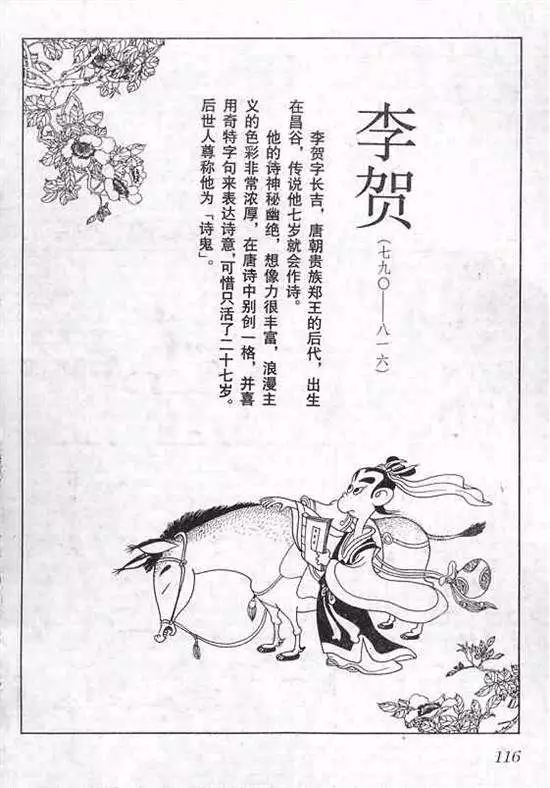 李贺
(七九〇——八一六)
李贺字长吉，唐朝贵族郑王的后代，出生
在昌谷，传说他七岁就会作诗。
他的诗神秘幽绝，想像力很丰富，浪漫主
义的色彩非常浓厚，在唐诗中别创一格，并喜
用奇特字句来表达诗意，可惜只活了二十七岁。
后世人尊称他为「诗鬼」。
116